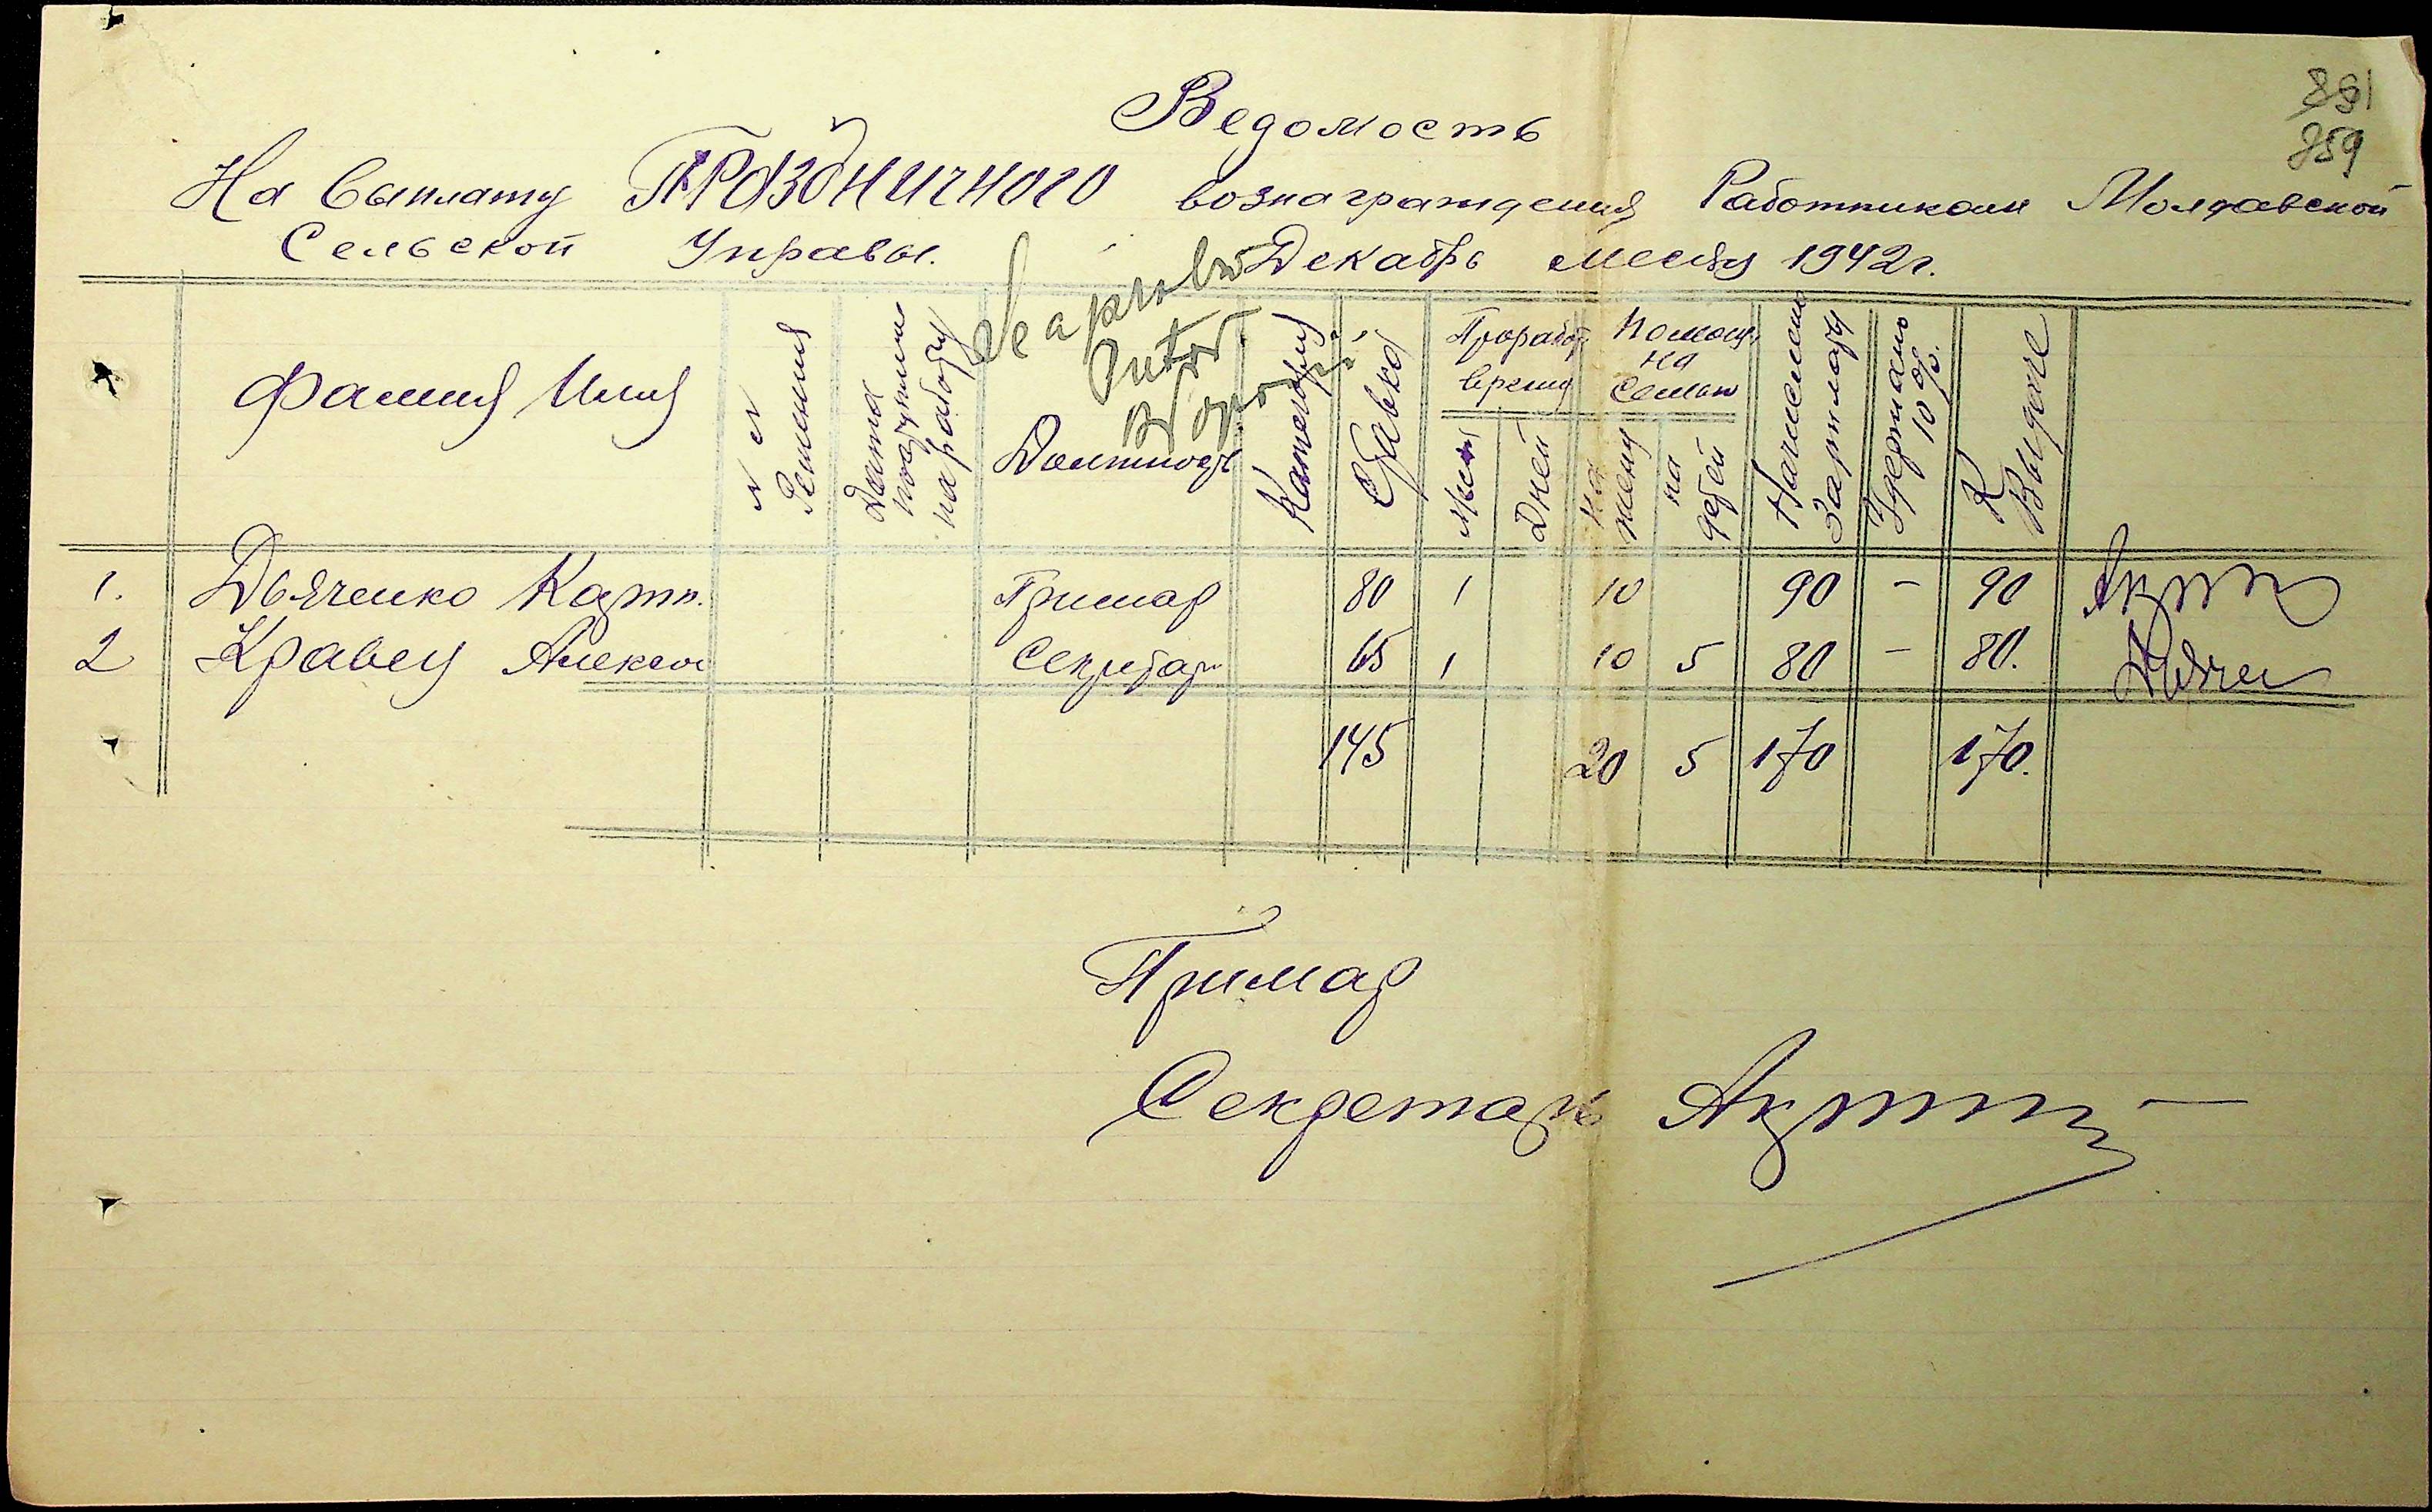 881
859
Ведомость
На выплату Праздничного вознаграждения Работникам Молдавской
Сельской Управы. Декабрь месяц 1942г.
Se aproba
Фамилия Имя
№ №
Решения
Дата
поступления
на работу
Должность
Категория
Ставка
Проработ
время
Месяц
Дней
Помощ
на
семью
на
жену
на
детей
Начислено
Зарплаты
Удержано
10%
К
Выдаче
1. Дьяченко Кузьм. Примар 80 1 10 90 – 90
2 Кравец Алексей Секретарь 65 1 10 5 80 – 80. Дьячен
145 20 5 170 170.
Примар
Секретарь